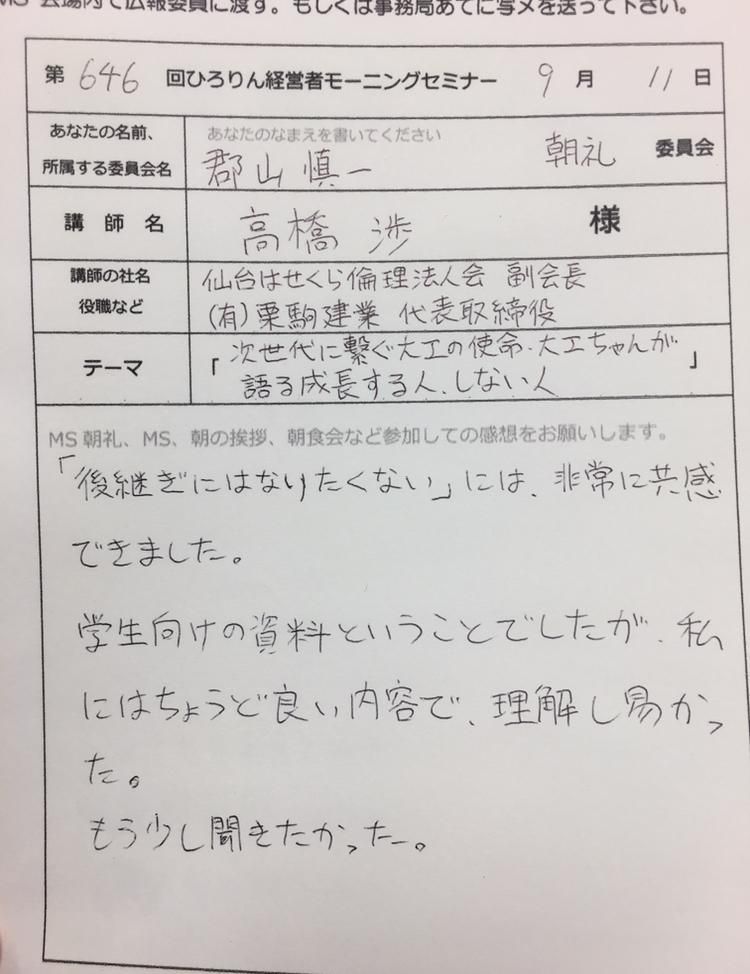 MS 会場内で広報委員に渡す。もしくは事務局あてに写メを送って下さい。
第 646 回ひろりん経営者モーニングセミナー 9 月 11 日
あなたの名前、
所属する委員会名
あなたのなまえを書いてください
郡山慎一 朝礼 委員会
講 師 名 高橋 渉 様
講師の社名
役職など
仙台はせくら倫理法人会 副会長
(有)栗駒建業 代表取締役
テーマ
「次世代に繋ぐ大工の使命・大工ちゃんが
語る成長する人、しない人」
MS 朝礼、MS、朝の挨拶、朝食会など参加しての感想をお願いします。
「後継ぎにはなりたくない」には、非常に共感
できました。
学生向けの資料ということでしたが、私
にはちょうど良い内容で、理解し易かっ
た。
もう少し聞きたかったー。